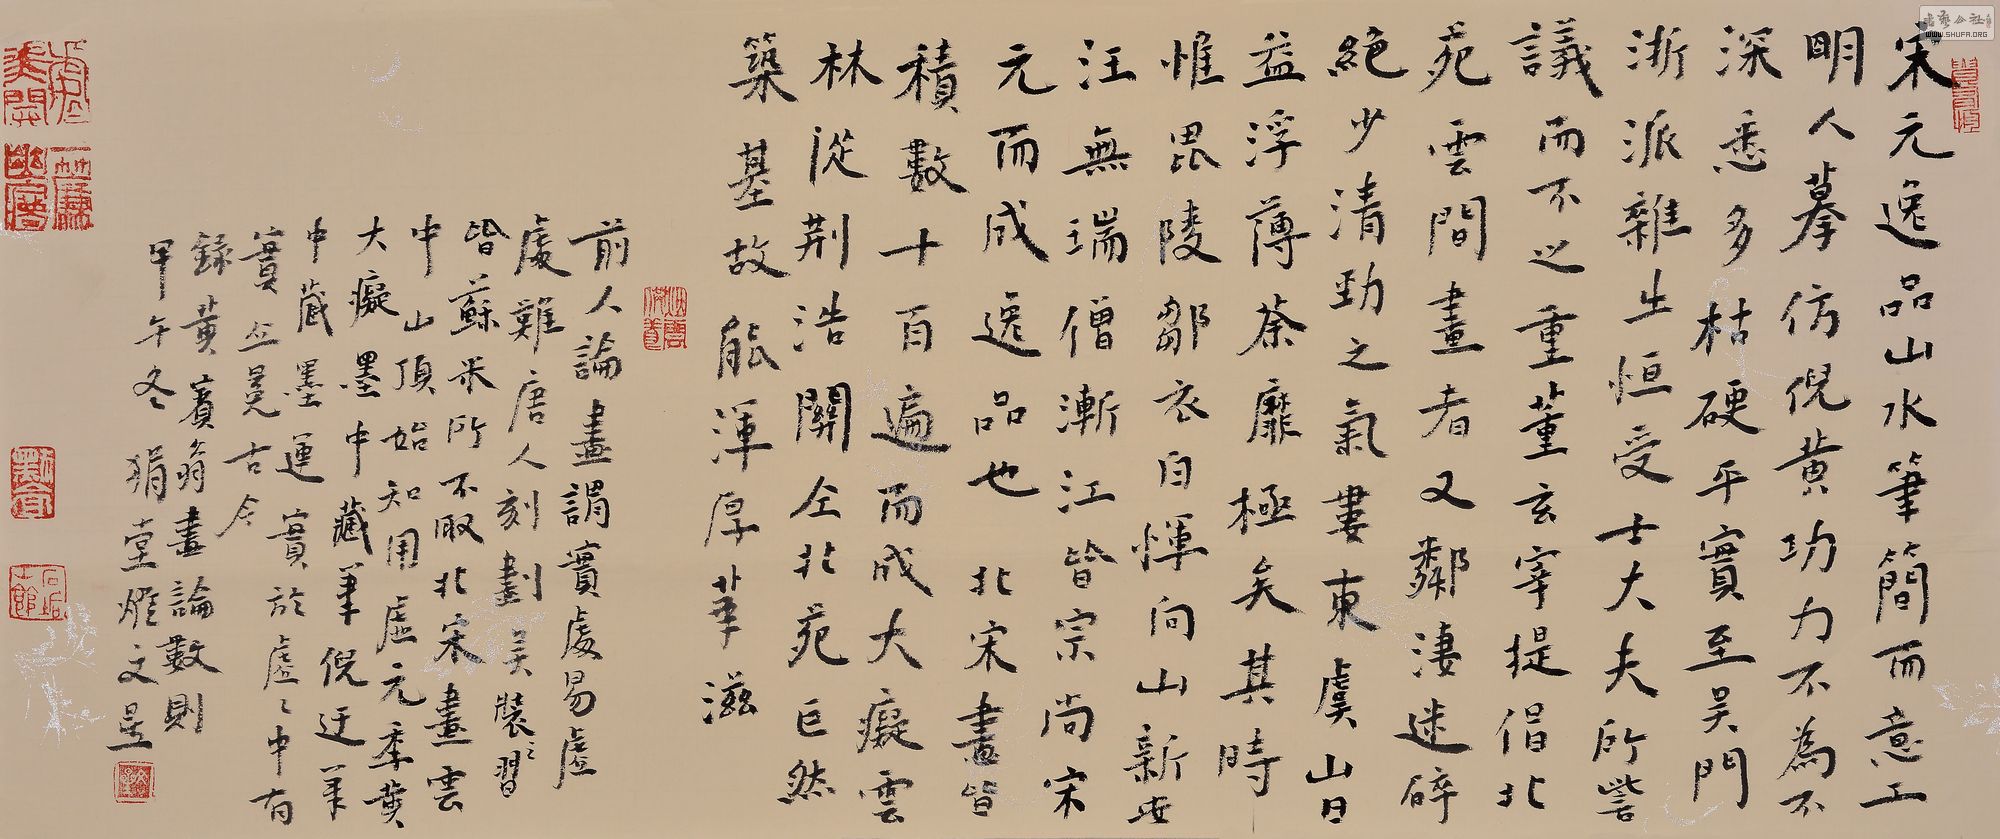 宋元逸品山水筆簡而意工
明人摹仿倪黃功力不為不
深悉多枯硬平實至吳門
浙派雜生恒受士大夫所訾
議而不之重董玄宰提倡北
苑雲間畫者又鄰淒迷碎
絕少清勁之氣婁東虞山日
益浮薄荼靡極矣其時
惟毘陵鄒衣白惲向山新安
汪無瑞僧漸江皆宗尚宋
元而成逸品也北宋畫皆
積數十百遍而成大癡雲
林從荆浩關仝北苑巨然
築基故能渾厚華滋
前人論畫謂實處易虛
處難唐人刻劃吳裝之習
皆蘇米所不取北宋畫雲
中山頂始知用虛元季黃
大癡墨中藏筆倪迂筆
中藏墨運實於虛虛中有
實亘古今
錄黃賓翁畫論數則
甲午冬狷堂文星
書藝公社
WWW.SHUFA.ORG